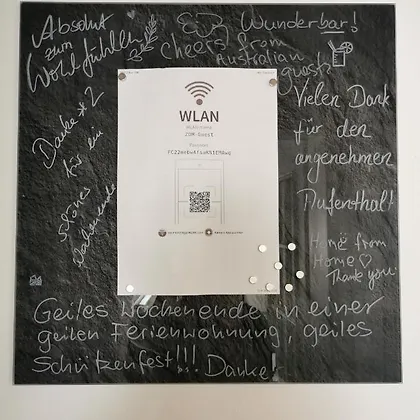 Absolut
zum
Wohlfühlen
Wunderbar!
Cheers from
Australian
guests
Danke *2
für ein
schönes
Wochenende
WLAN
ZUM Guest
Vielen Dank
für den
angenehmen
Aufenthalt!
Home from
Home ♡
Thank you
Geiles Wochenende in einer
geilen Ferienwohnung, geiles
Schützenfest!!! Danke!